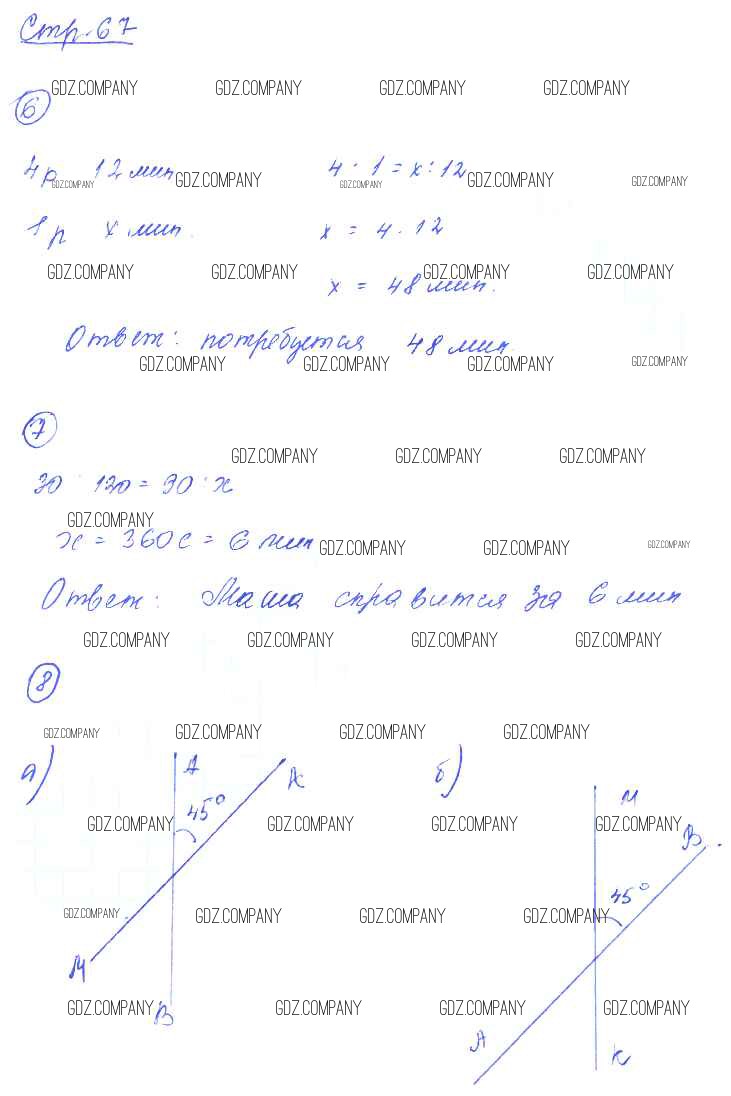 Стр. 67
GDZ.COMPANY GDZ.COMPANY GDZ.COMPANY GDZ.COMPANY
6
4р 12 мин 4 : 1 = x : 12
GDZ.COMPANY GDZ.COMPANY GDZ.COMPANY GDZ.COMPANY GDZ.COMPANY
1р x мин. x = 4 · 12
GDZ.COMPANY GDZ.COMPANY GDZ.COMPANY GDZ.COMPANY
x = 48 мин.
Ответ: потребуется 48 мин
GDZ.COMPANY GDZ.COMPANY GDZ.COMPANY GDZ.COMPANY
7
GDZ.COMPANY GDZ.COMPANY GDZ.COMPANY
30 : 120 = 90 : x
GDZ.COMPANY
x = 360 с = 6 мин
GDZ.COMPANY GDZ.COMPANY GDZ.COMPANY
Ответ: Маша справится за 6 мин
GDZ.COMPANY GDZ.COMPANY GDZ.COMPANY GDZ.COMPANY
8
GDZ.COMPANY GDZ.COMPANY GDZ.COMPANY GDZ.COMPANY
а) A K б)
45° M
GDZ.COMPANY GDZ.COMPANY GDZ.COMPANY GDZ.COMPANY
B
45°
GDZ.COMPANY GDZ.COMPANY GDZ.COMPANY GDZ.COMPANY
M
GDZ.COMPANY GDZ.COMPANY GDZ.COMPANY GDZ.COMPANY
B
A K